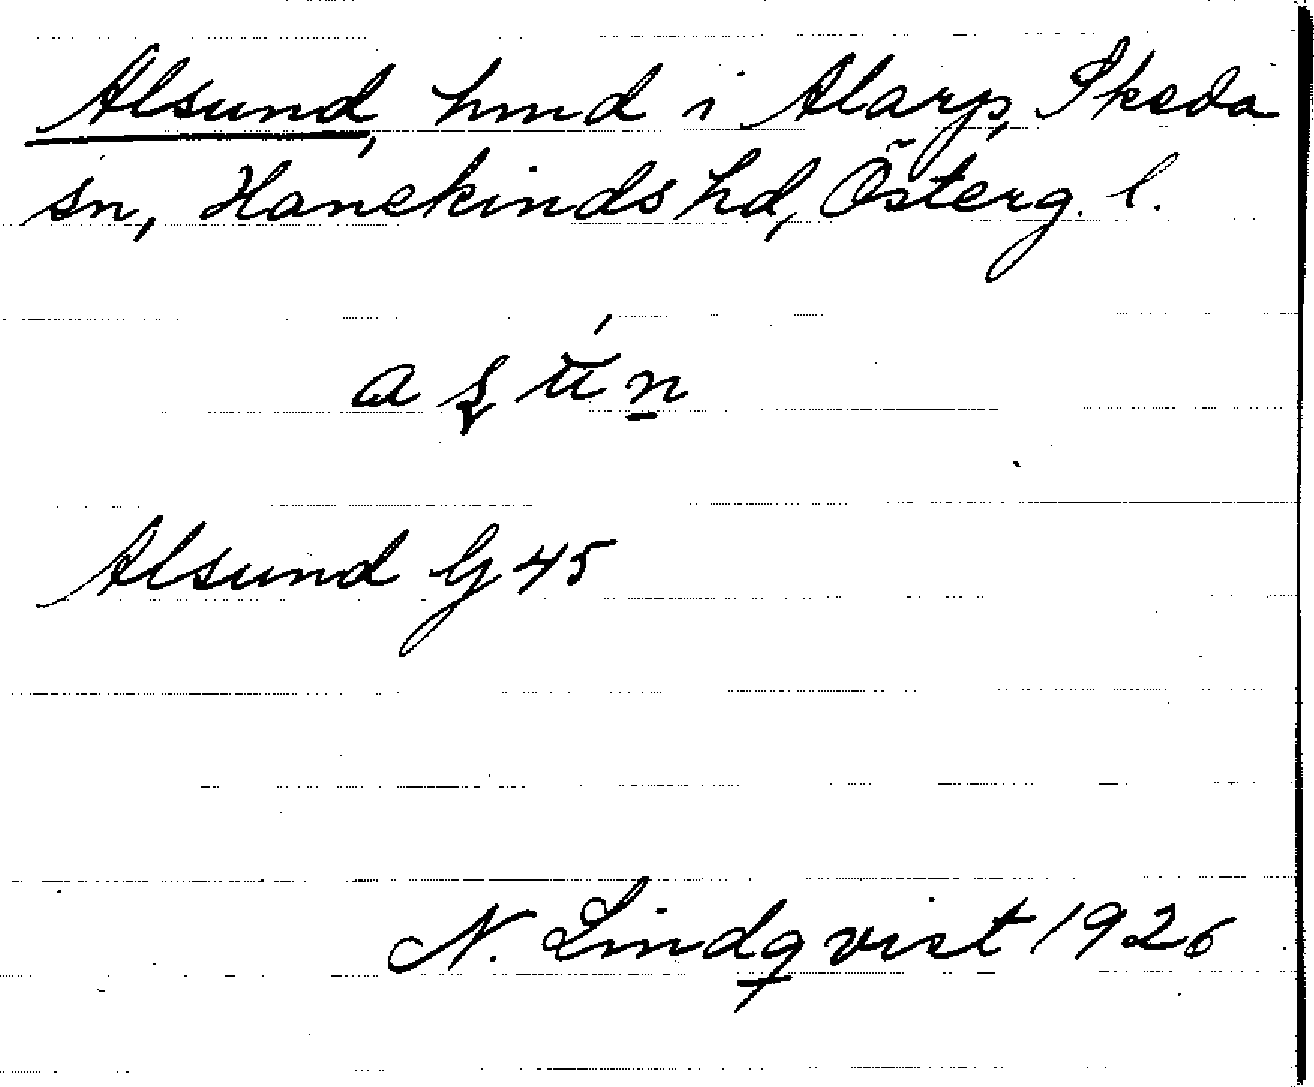 Alsund, hmd i Alarp, Skeda
sn, Hanekinds hd, Österg. l.
Alsund G 45
N. Lindqvist 1926